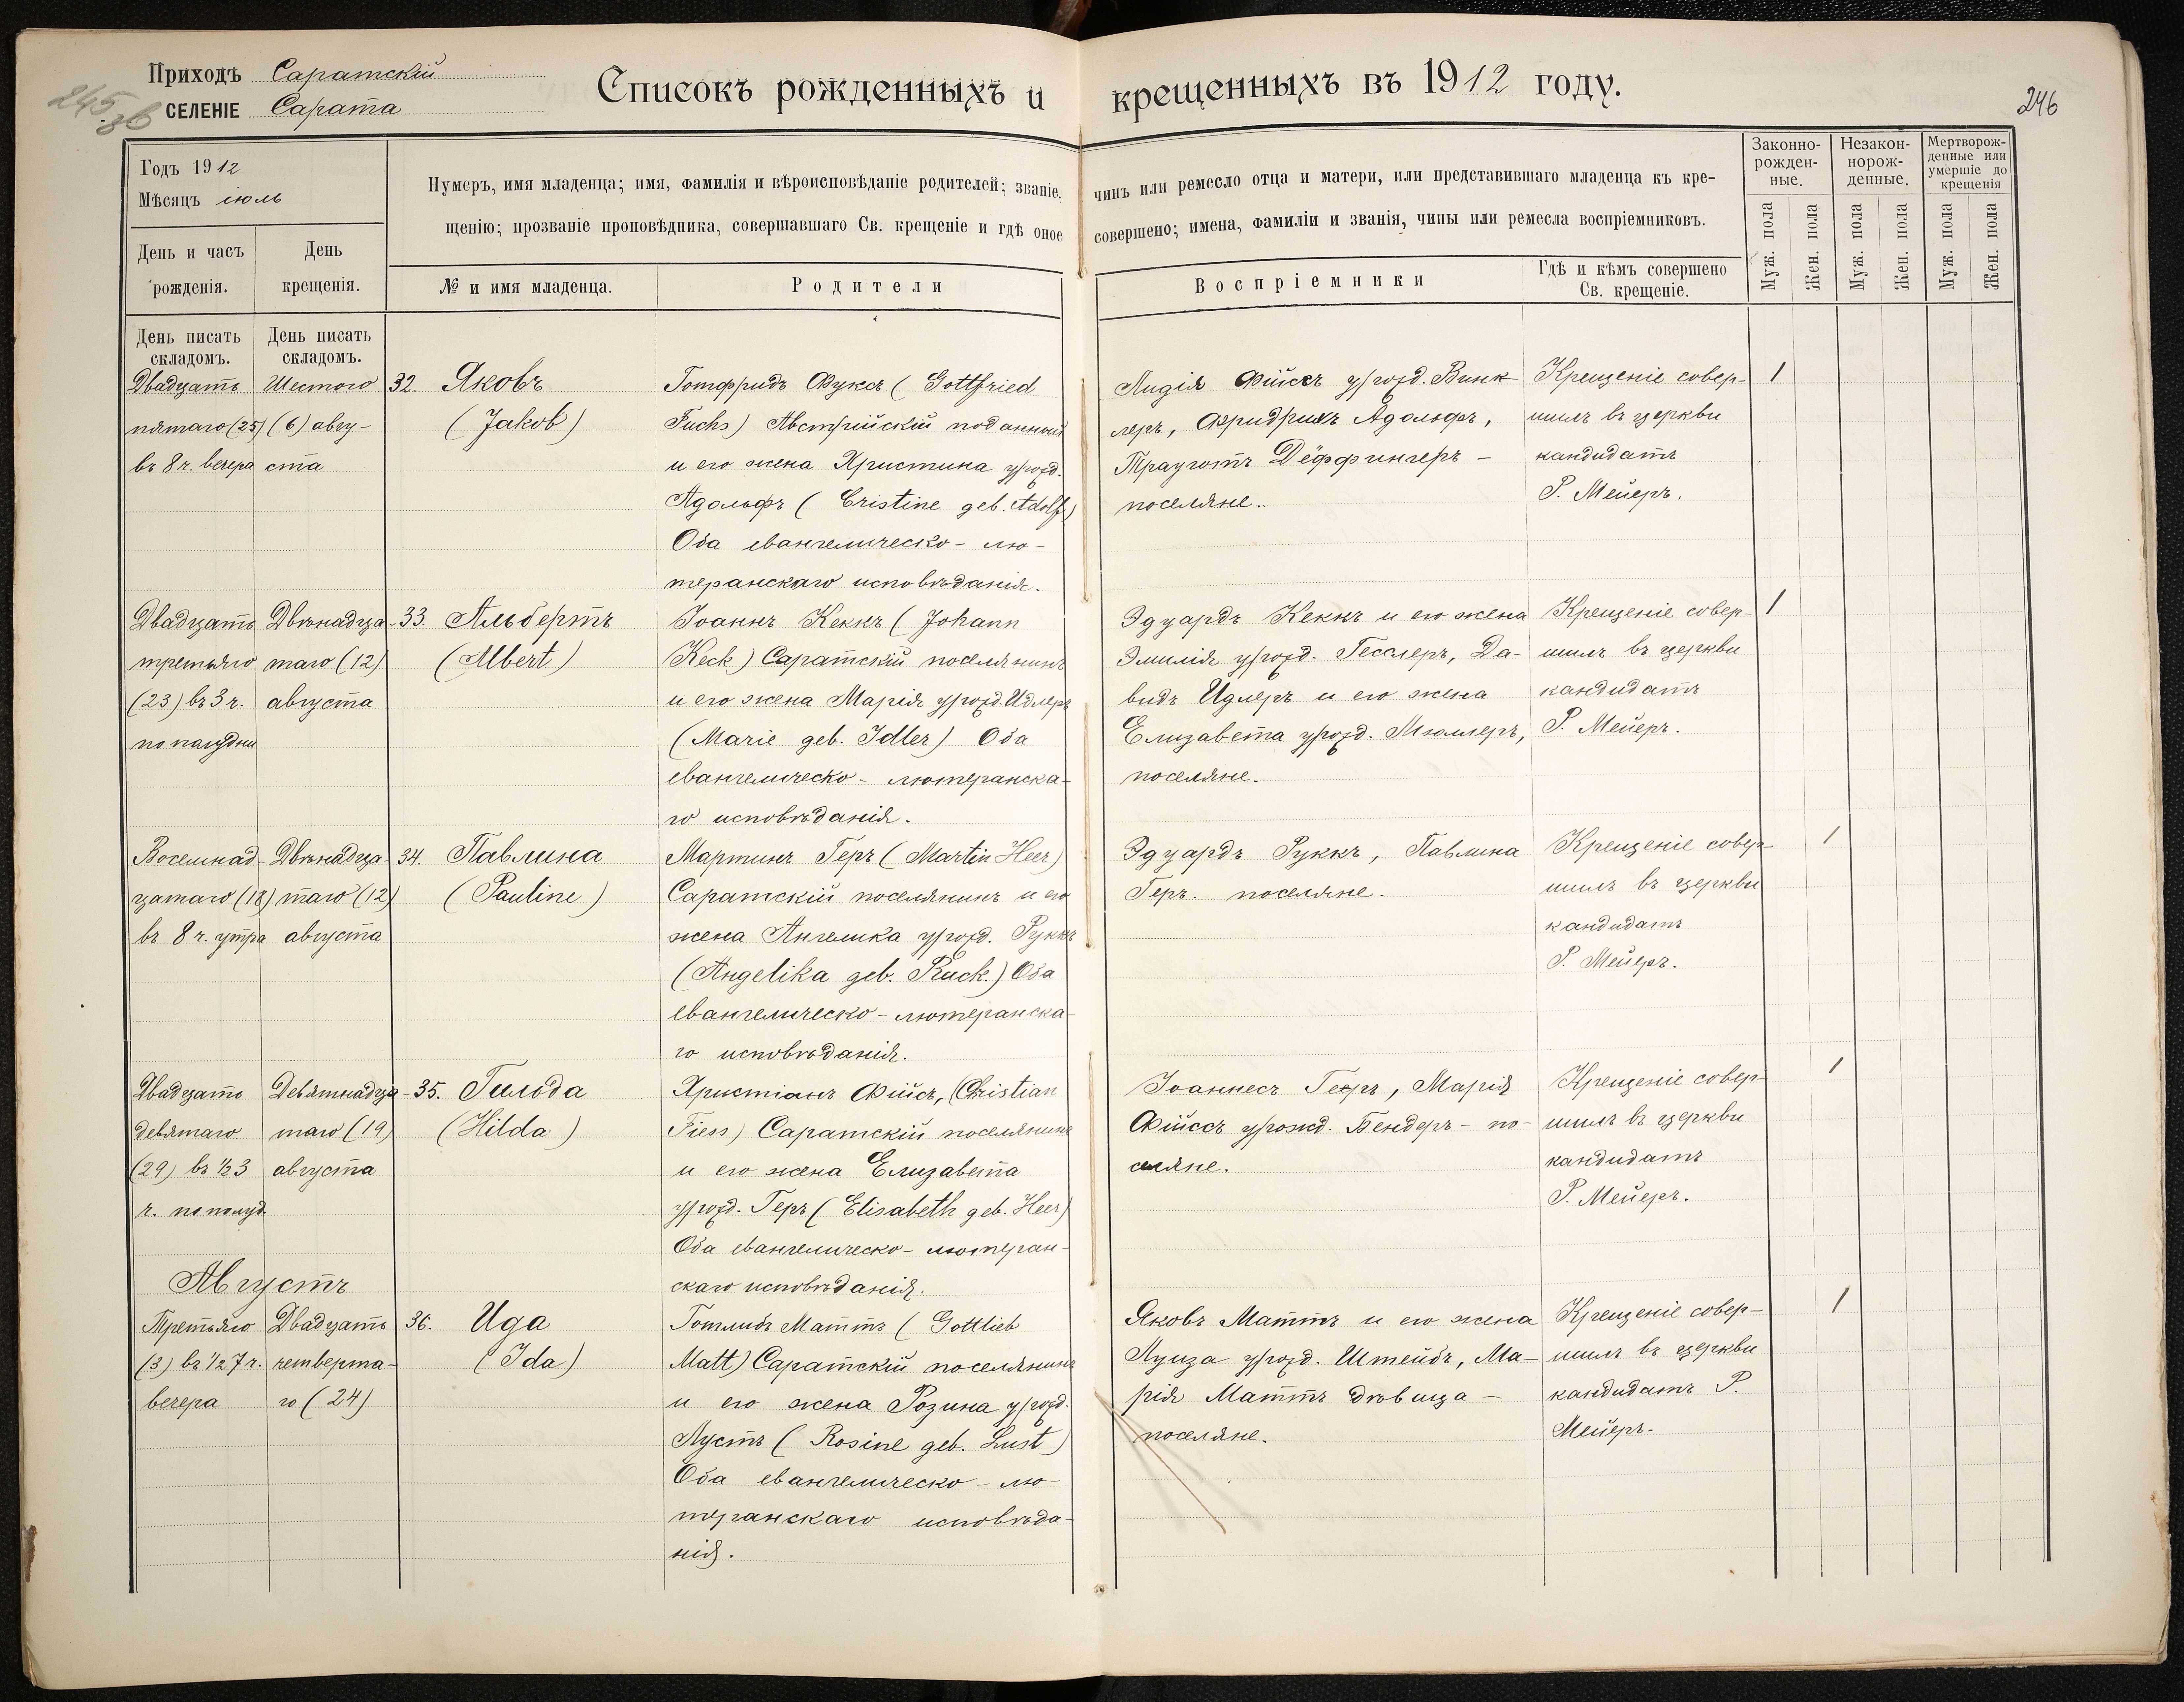 Приходъ Саратскій
СЕЛЕНІЕ Сарата
245 об
Списокъ рожденныхъ и крещенныхъ въ 1912 году.
246
Годъ 1912
Мѣсяцъ іюль
День и часъ
рожденія.
День
крещенія.
Нумеръ, имя младенца; имя, фамилія и вѣроисповѣданіе родителей; званіе, чинъ или ремесло отца и матери, или представившаго младенца къ кре-
щенію; прозваніе проповѣдника, совершавшаго Св. крещеніе и гдѣ оное совершено; имена, фамиліи и званія, чины или ремесла воспріемниковъ.
№ и имя младенца.
Родители
Воспріемники
Гдѣ и кѣмъ совершено
Св. крещеніе.
Законно-
рожден-
ные.
Незакон-
норож-
денные.
Мертворож-
денные или
умершіе до
крещенія
Муж. пола
Жен. пола
Муж. пола
Жен. пола
Муж. пола
Жен. пола
День писать
складомъ.
День писать
складомъ.
Двадцать
пятаго (25)
въ 8 ч. вечера
Шестого
(6) авгу-
ста
32. Яковъ
(Jakob)
Готфридъ Фуксъ (Gottfried
Fuchs) Австрійскій поданный
и его жена Христина урожд.
Адольфъ (Cristine geb. Adolf)
Оба евангелическо-лю-
теранскаго исповѣданія.
Лидія Фійссъ урожд. Винк-
леръ, Фридрихъ Адольфъ,
Трауготъ Дёффингеръ -
поселяне.
Крещеніе совер-
шилъ въ церкви
кандидатъ
Р. Мейеръ.
1
Двадцать
третьяго
(23) въ 3 ч.
по полудни
Двѣнадца-
таго (12)
августа
33. Альбертъ
(Albert)
Іоаннъ Кеккъ (Johann
Keck) Саратскій поселянинъ
и его жена Марія урожд. Идлеръ
(Marie geb. Idler) Оба
евангелическо-лютеранска-
го исповѣданія.
Эдуардъ Кеккъ и его жена
Эмилія урожд. Гесслеръ, Да-
видъ Идлеръ и его жена
Елизавета урожд. Мюллеръ,
поселяне.
Крещеніе совер-
шилъ въ церкви
кандидатъ
Р. Мейеръ.
1
Восемнад-
цатаго (18)
въ 8 ч. утра
Двѣнадца-
таго (12)
августа
34. Павлина
(Pauline)
Мартинъ Геръ (Martin Heer)
Саратскій поселянинъ и его
жена Ангелика урожд. Руккъ
(Angelika geb. Ruck.) Оба
евангелическо-лютеранска-
го исповѣданія.
Эдуардъ Руккъ, Павлина
Геръ. поселяне.
Крещеніе совер-
шилъ въ церкви
кандидатъ
Р. Мейеръ.
1
Двадцать
девятаго
(29) въ ½ 3
ч. по полуд.
Девятнадца-
таго (19)
августа
35. Гильда
(Hilda)
Христіанъ Фійсъ, (Christian
Fiess) Саратскій поселянинъ
и его жена Елизавета
урожд. Геръ (Elisabeth geb. Heer)
Оба евангелическо-лютеран-
скаго исповѣданія.
Іоаннесъ Герръ, Марія
Фійссъ урожд. Бендеръ - по-
селяне.
Крещеніе совер-
шилъ въ церкви
кандидатъ
Р. Мейеръ.
1
Августъ
Третьяго
(3) въ ½ 7 ч.
вечера
Двадцать
четверта-
го (24)
36. Ида
(Ida)
Готлибъ Маттъ (Gottlieb
Matt) Саратскій поселянинъ
и его жена Розина урожд.
Лустъ (Rosine geb. Lust)
Оба евангелическо-лю-
теранскаго исповѣда-
нія.
Яковъ Маттъ и его жена
Луиза урожд. Штейбъ, Ма-
рія Маттъ дѣвица -
поселяне.
Крещеніе совер-
шилъ въ церкви
кандидатъ Р.
Мейеръ.
1